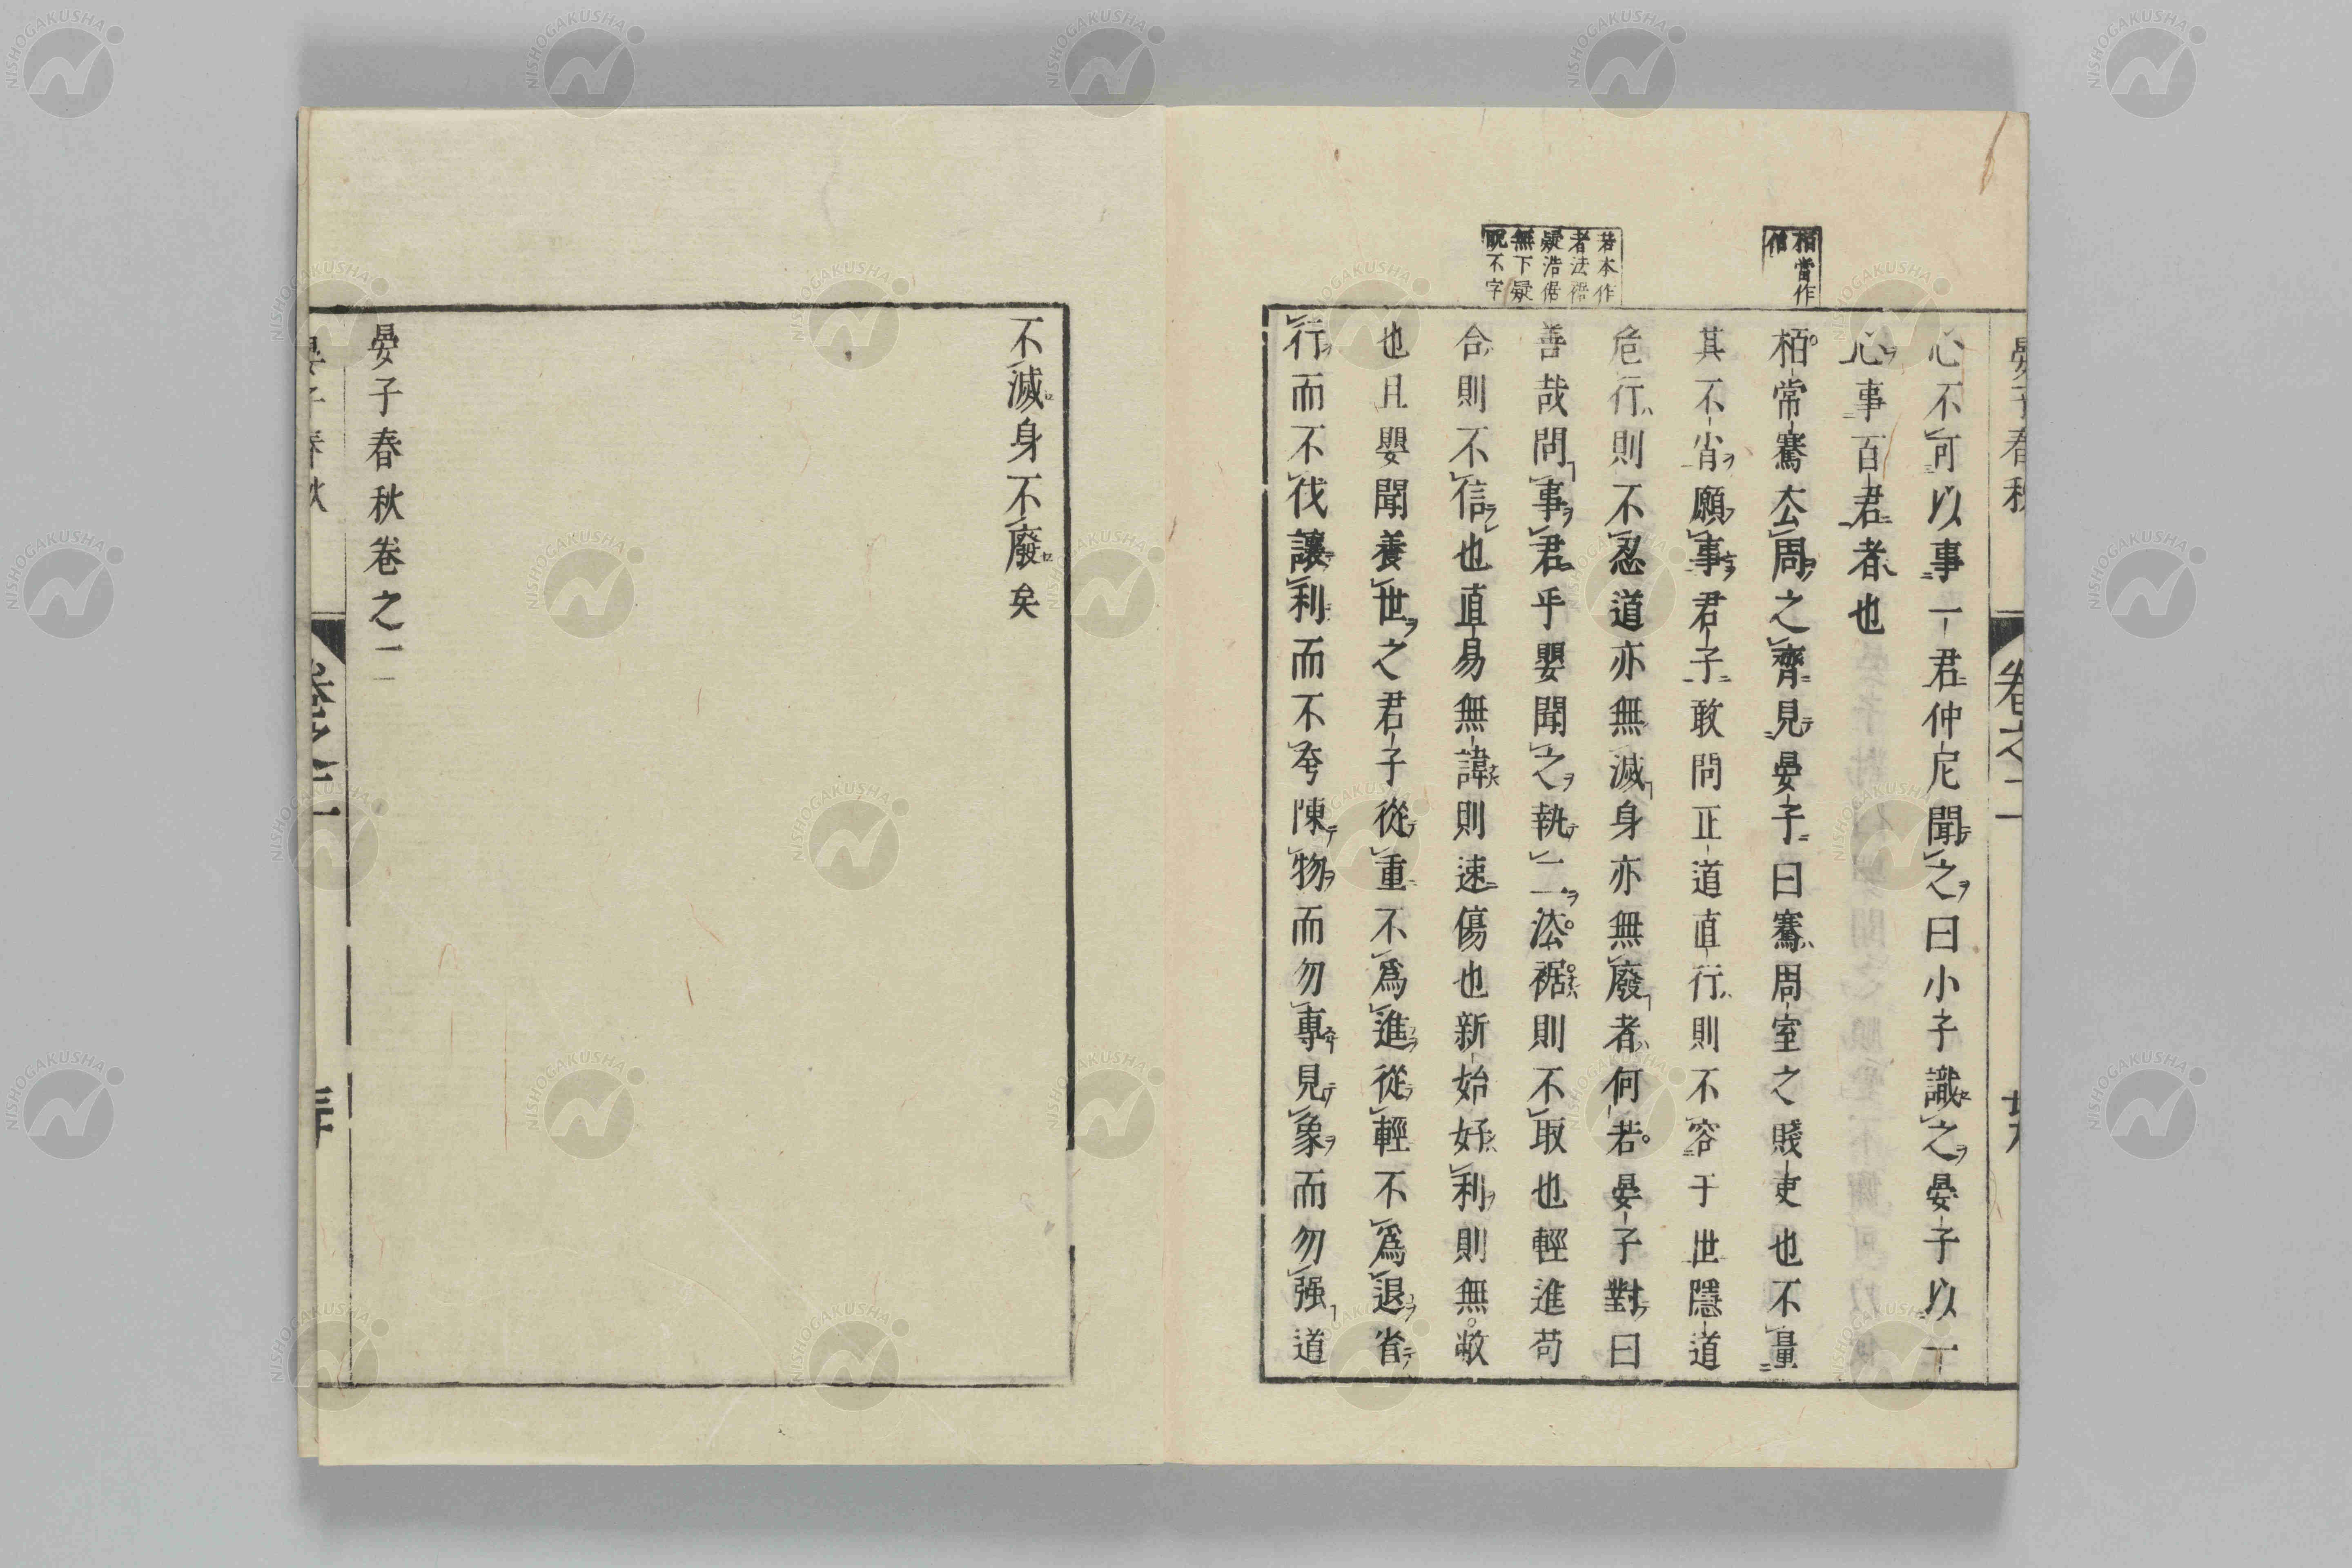 栢當作
偕
若本作
者法裾
疑浩倨
無下疑
脫不字
心不可以事一君仲尼聞之曰小子識之晏子以一
心事百君者也
栢常騫去周之齊見晏子曰騫周室之賤吏也不量
其不肖願事君子敢問正道直行則不容于世隱道
危行則不忍道亦無滅身亦無廢者何若晏子對曰
善哉問事君乎嬰聞之執二法裾則不取也輕進苟
合則不信也直易無諱則速傷也新始好利則無敝
也且嬰聞養世之君子從重不爲進從輕不爲退省
行而不伐讓利而不夸陳物而勿專見象而勿强道
不滅身不廢矣
晏子春秋卷之二
晏子春秋
卷之二
NISHOGAKUSHA